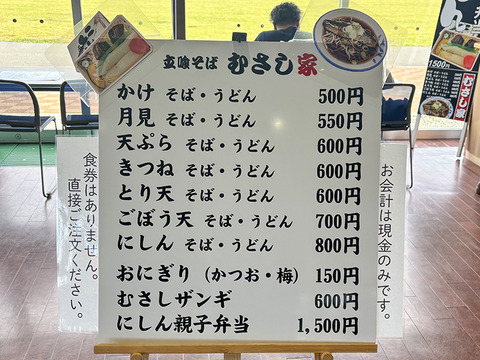 立喰そば むさし家
かけ そば・うどん 500円
月見 そば・うどん 550円
天ぷら そば・うどん 600円
きつね そば・うどん 600円
とり天 そば・うどん 600円
ごぼう天 そば・うどん 700円
にしん そば・うどん 800円
おにぎり（かつお・梅） 150円
むさしザンギ 600円
にしん親子弁当 1,500円
お会計は現金のみです。
食券はありません。
直接ご注文ください。
1500円
むさし家